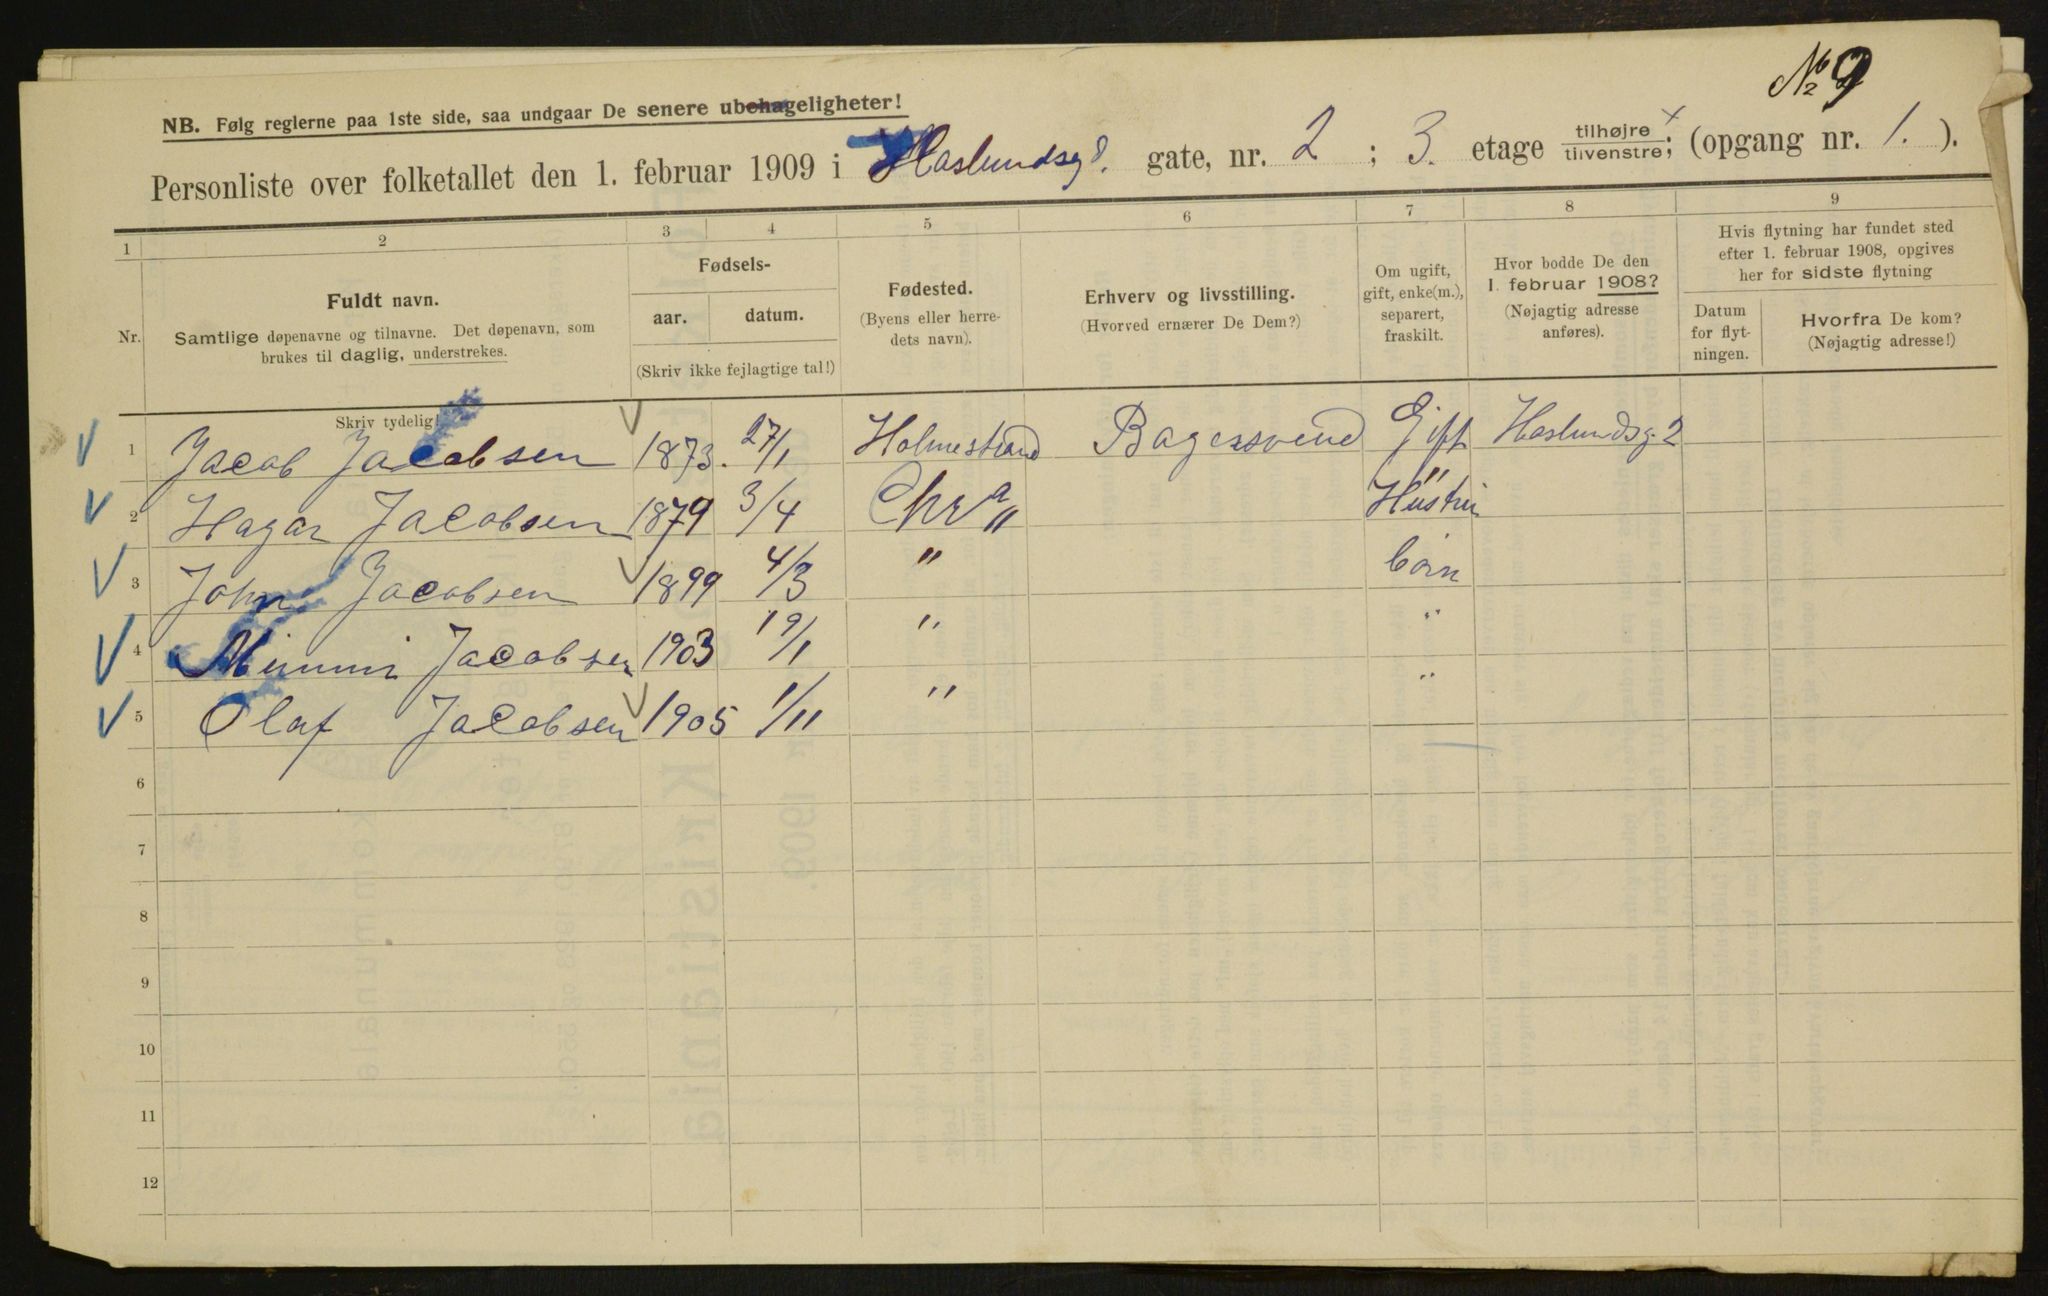 № 9
NB. Følg reglerne paa 1ste side, saa undgaar De senere ubehageligheter!
Personliste over folketallet den 1. februar 1909 i Haslundsg. gate, nr. 2 ; 3. etage tilhøjre/tilvenstre; (opgang nr. 1. ).
1 2 3 4 5 6 7 8 9
Nr.
Fuldt navn.
Samtlige døpenavne og tilnavne. Det døpenavn, som
brukes til daglig, understrekes.
Fødsels-
aar. datum.
(Skriv ikke fejlagtige tal!)
Fødested.
(Byens eller herre-
dets navn).
Erhverv og livsstilling.
(Hvorved ernærer De Dem?)
Om ugift,
gift, enke(m.),
separert,
fraskilt.
Hvor bodde De den
1. februar 1908?
(Nøjagtig adresse
anføres).
Hvis flytning har fundet sted
efter 1. februar 1908, opgives
her for sidste flytning
Datum
for flyt-
ningen.
Hvorfra De kom?
(Nøjagtig adresse!)
Skriv tydelig!
1 Jacob Jacobsen 1873. 27/1 Holmestrand Bagersvend Gift Haslundsg. 2
2 Hagar Jacobsen 1879 3/4 Chra Hüstru
3 John Jacobsen 1899 4/3 " börn
4 Mimmi Jacobsen 1903 19/1 " "
5 Olaf Jacobsen 1905 1/11 " "
6
7
8
9
10
11
12